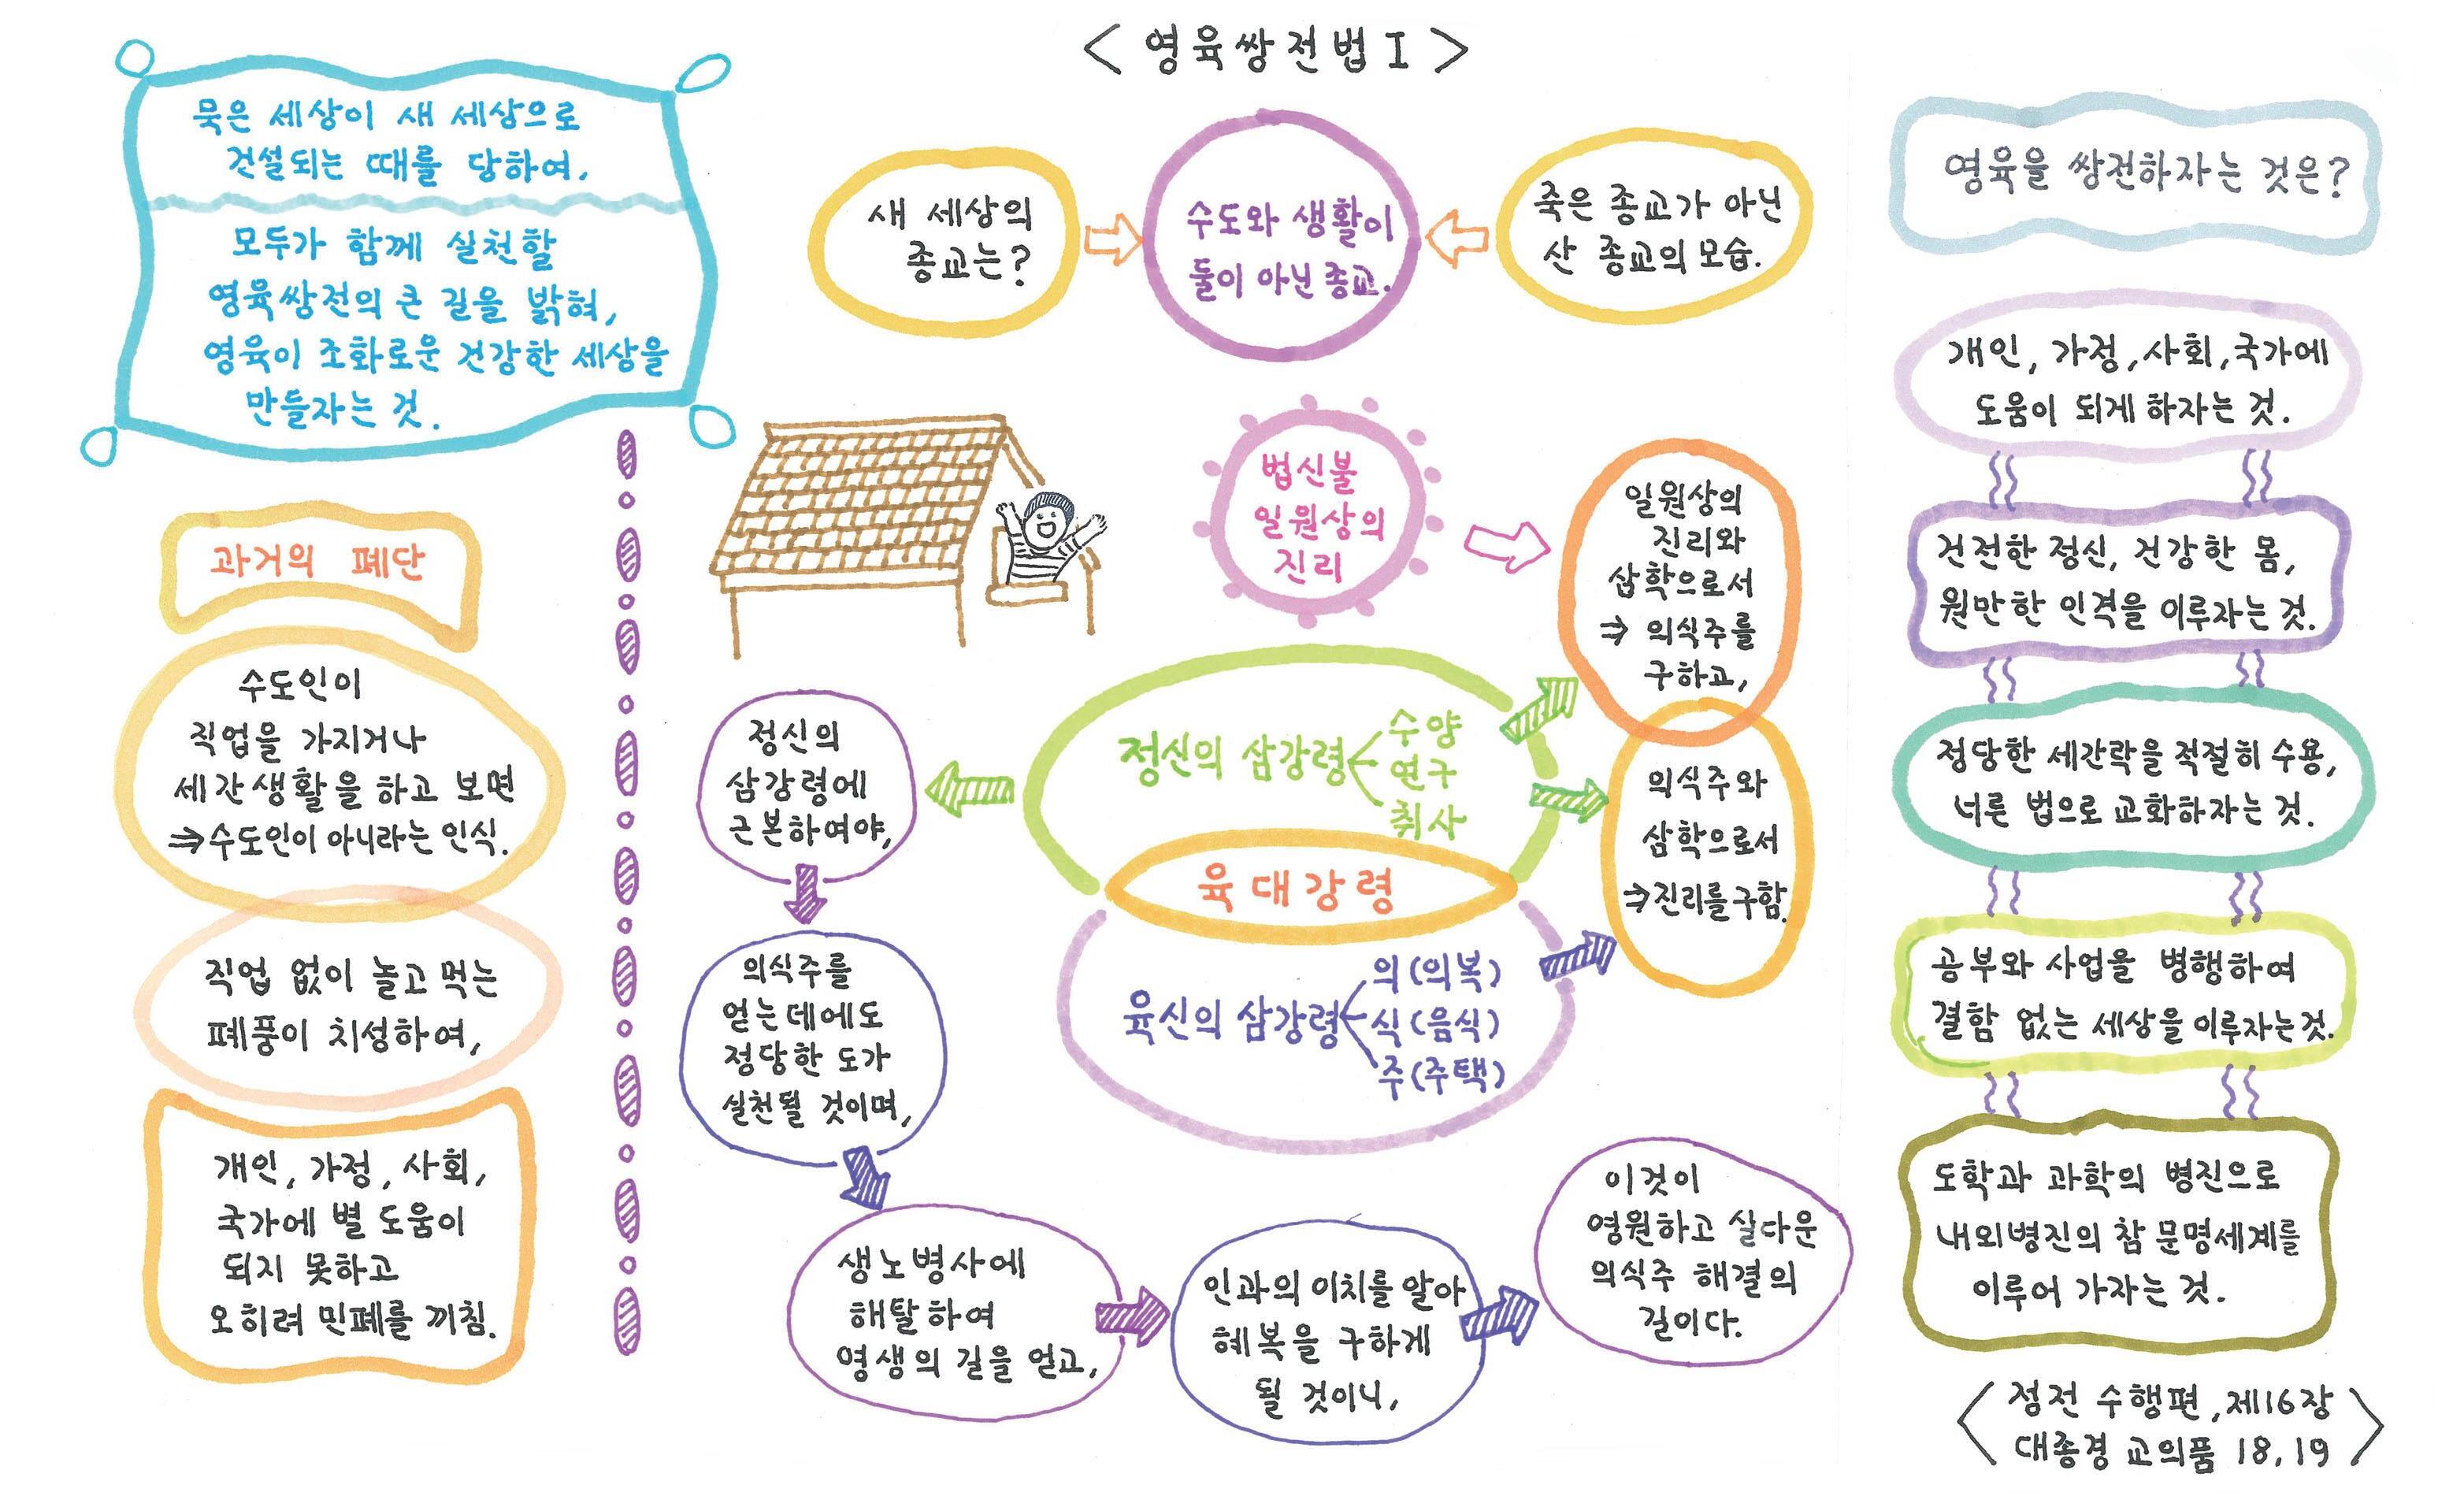 < 영육쌍전법 I >
묵은 세상이 새 세상으로
건설되는 때를 당하여,
모두가 함께 실천할
영육쌍전의 큰 길을 밝혀,
영육이 조화로운 건강한 세상을
만들자는 것.
과거의 폐단
수도인이
직업을 가지거나
세간생활을 하고 보면
⇒수도인이 아니라는 인식.
직업 없이 놀고 먹는
폐풍이 치성하여,
개인, 가정, 사회,
국가에 별 도움이
되지 못하고
오히려 민폐를 끼침.
새 세상의
종교는?
수도와 생활이
둘이 아닌 종교.
죽은 종교가 아닌
산 종교의 모습.
법신불
일원상의
진리
일원상의
진리와
삼학으로서
⇒ 의식주를
구하고,
의식주와
삼학으로서
⇒진리를구함.
정신의 삼강령
수양
연구
취사
육대강령
육신의 삼강령
의(의복)
식(음식)
주(주택)
정신의
삼강령에
근본하여야,
의식주를
얻는데에도
정당한 도가
실천될 것이며,
생노병사에
해탈하여
영생의 길을 얻고,
인과의 이치를 알아
혜복을 구하게
될 것이니,
이것이
영원하고 실다운
의식주 해결의
길이다.
영육을 쌍전하자는 것은?
개인, 가정, 사회, 국가에
도움이 되게 하자는 것.
건전한 정신, 건강한 몸,
원만한 인격을 이루자는 것.
정당한 세간락을 적절히 수용,
너른 법으로 교화하자는 것.
공부와 사업을 병행하여
결함 없는 세상을 이루자는것.
도학과 과학의 병진으로
내외병진의 참 문명세계를
이루어 가자는 것.
<정전 수행편, 제16장
대종경 교의품 18, 19>